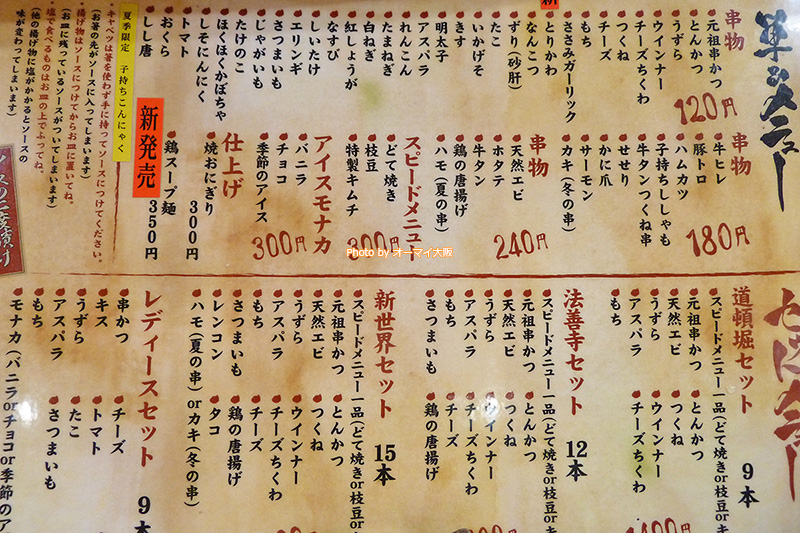 単品メニュー
串物
元祖串かつ
とんかつ
うずら
ウインナー
チーズちくわ
チーズ
つくね
もち
ささみガーリック
とりかわ
なんこつ
ずり(砂肝)
たこ
いかげそ
きす
明太子
アスパラ
れんこん
たまねぎ
白ねぎ
紅しょうが
なすび
しいたけ
エリンギ
さつまいも
じゃがいも
たけのこ
ほくほくかぼちゃ
しそにんにく
トマト
おくら
しし唐
120円
串物
牛ヒレ
豚トロ
ハムカツ
子持ちししゃも
牛タンつくね串
せせり
かに爪
サーモン
カキ(冬の串)
180円
串物
天然エビ
ホタテ
牛タン
鶏の唐揚げ
ハモ(夏の串)
240円
スピードメニュー
どて焼き
枝豆
特製キムチ
300円
アイスモナカ
バニラ
チョコ
季節のアイス
300円
仕上げ
焼おにぎり 300円
鶏スープ麺 350円
新発売
夏季限定 子持ちこんにゃく
・キャベツは箸を使わず手に持ってソースにつけてください。
(お箸の先がソースに入ってしまいます)
・揚げ物はソースにつけてからお皿に置いてね。
(お皿に残っているソースがついてしまいます)
・塩で食べるものはお皿の上でふってね。
(他の揚げ物に塩がかかるとソースの
味が変わってしまいます)
Photo by オーマイ大阪
道頓堀セット 9本
スピードメニュー一品(どて焼きor枝豆or
元祖串かつ
天然エビ
うずら
アスパラ
もち
とんかつ
つくね
ウインナー
チーズちくわ
法善寺セット 12本
スピードメニュー一品(どて焼きor枝豆orキ
元祖串かつ
天然エビ
うずら
アスパラ
もち
さつまいも
とんかつ
つくね
ウインナー
チーズちくわ
チーズ
鶏の唐揚げ
新世界セット 15本
スピードメニュー一品(どて焼きor枝豆or
元祖串かつ
天然エビ
うずら
アスパラ
もち
さつまいも
レンコン
ハモ(夏の串)orカキ(冬の串)
とんかつ
つくね
ウインナー
チーズちくわ
チーズ
鶏の唐揚げ
タコ
レディースセット 9本
串かつ
キス
うずら
アスパラ
もち
モナカ(バニラorチョコor季節のア
チーズ
トマト
たこ
さつまいも